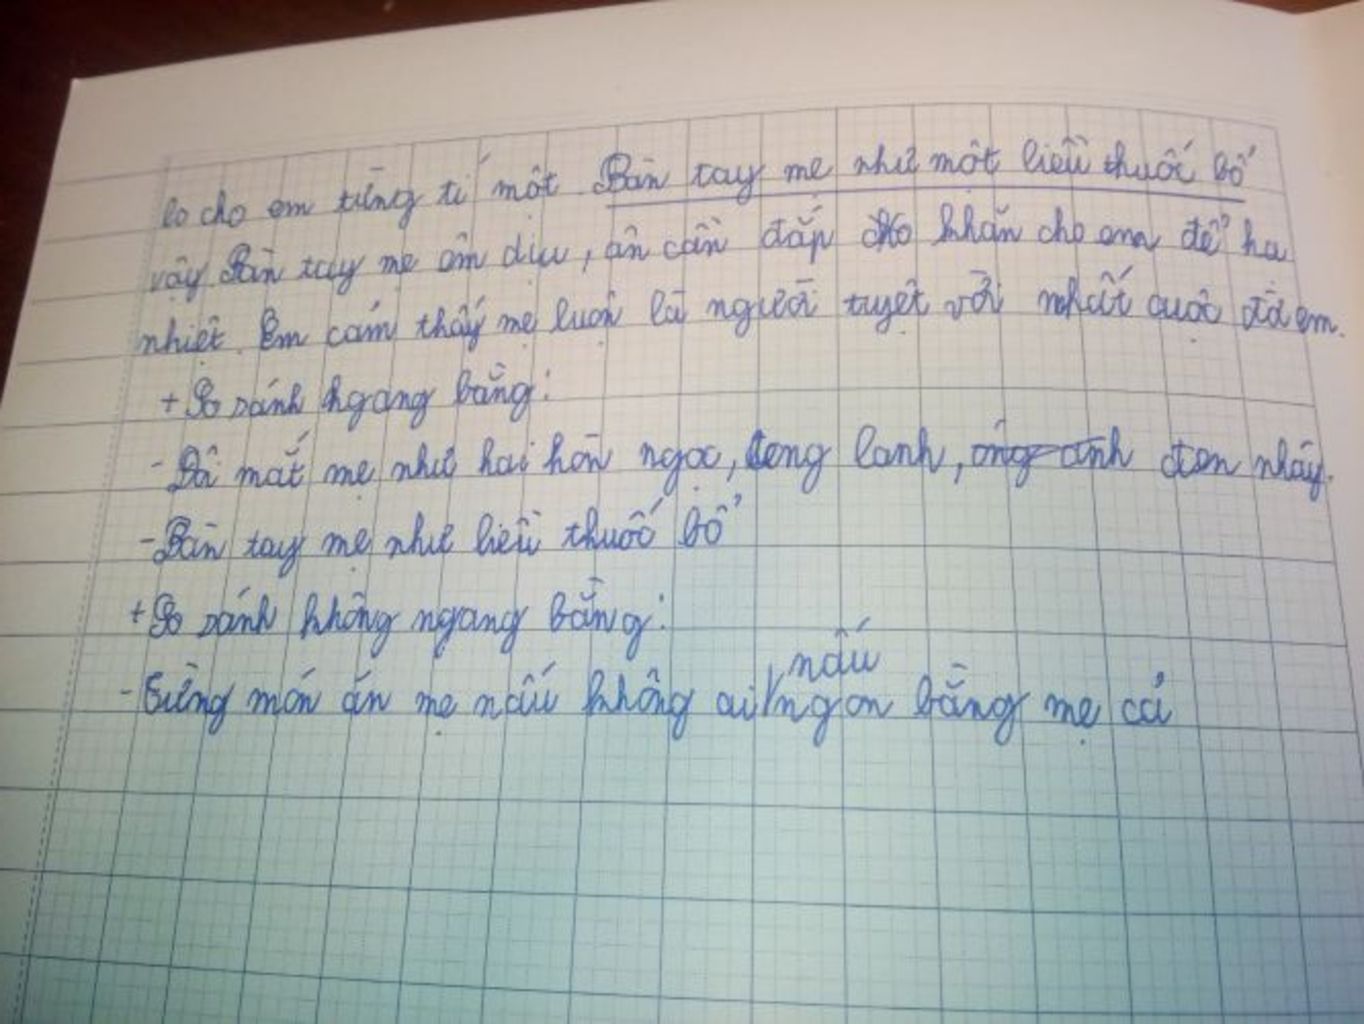 lo cho em từng tí một. Bàn tay mẹ như một liều thuốc bổ
vậy. Bàn tay mẹ êm dịu, ân cần đắp cho khăn cho em để hạ
nhiệt. Em cảm thấy mẹ luôn là người tuyệt vời nhất cuộc đời em.
+ So sánh ngang bằng:
- Đôi mắt mẹ như hai hòn ngọc, long lanh, óng ánh đen nháy.
- Bàn tay mẹ như liều thuốc bổ
+ So sánh không ngang bằng:
- Từng món ăn mẹ nấu không ai nấu ngon bằng mẹ cả